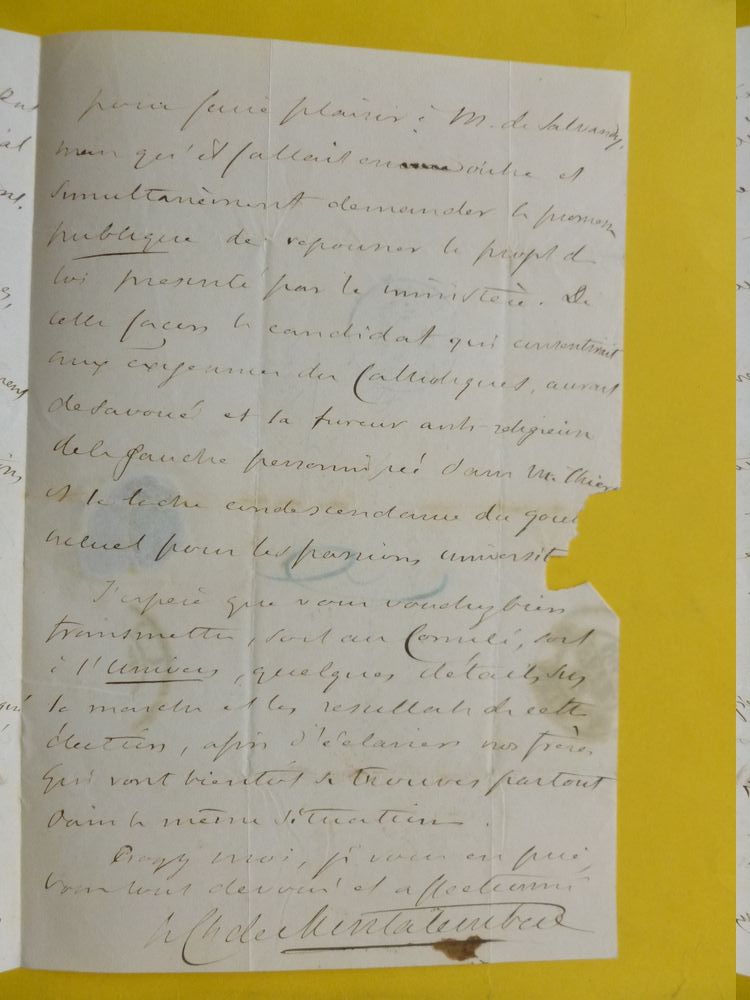 pour faire plaisir à M. de Salvandy,
mais qu'il fallait en outre et
simultanément demander la promesse
publique de repousser le projet de
loi présenté par le ministère. De
cette façon le candidat qui consentirait
aux exigences des Catholiques, aurait
désavoué et la fureur anti-religieuse
de la Gauche personnifiée dans M. Thiers
et la lâche condescendance du gou
actuel pour les passions universit
J'espère que vous voudrez bien
transmettre, soit au Comité, soit
à l'Univers, quelques détails sur
la marche et les résultats de cette
élection, afin d'éclairer nos frères
qui vont bientôt se trouver partout
dans la même situation.
Croyez moi, je vous en prie,
votre tout dévoué et affectionné
le Cte de Montalembert